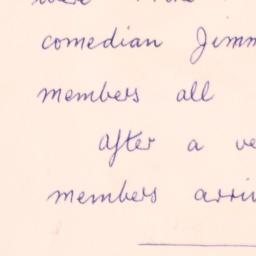 were
comedian Jimm
members all
After a ve
members arri